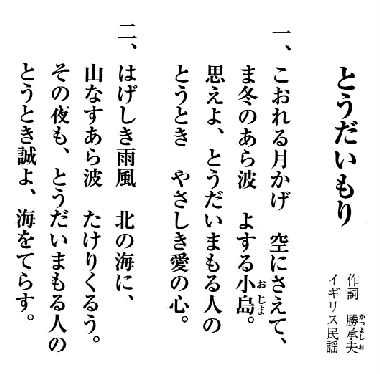 とうだいもり
作詞　勝承夫
イギリス民謡
一、こおれる月かげ　空にさえて、
ま冬のあら波　よする小島。
思えよ、とうだいまもる人の
とうとき　やさしき愛の心。
二、はげしき雨風　北の海に、
山なすあら波　たけりくるう。
その夜も、とうだいまもる人の
とうとき誠よ、海をてらす。